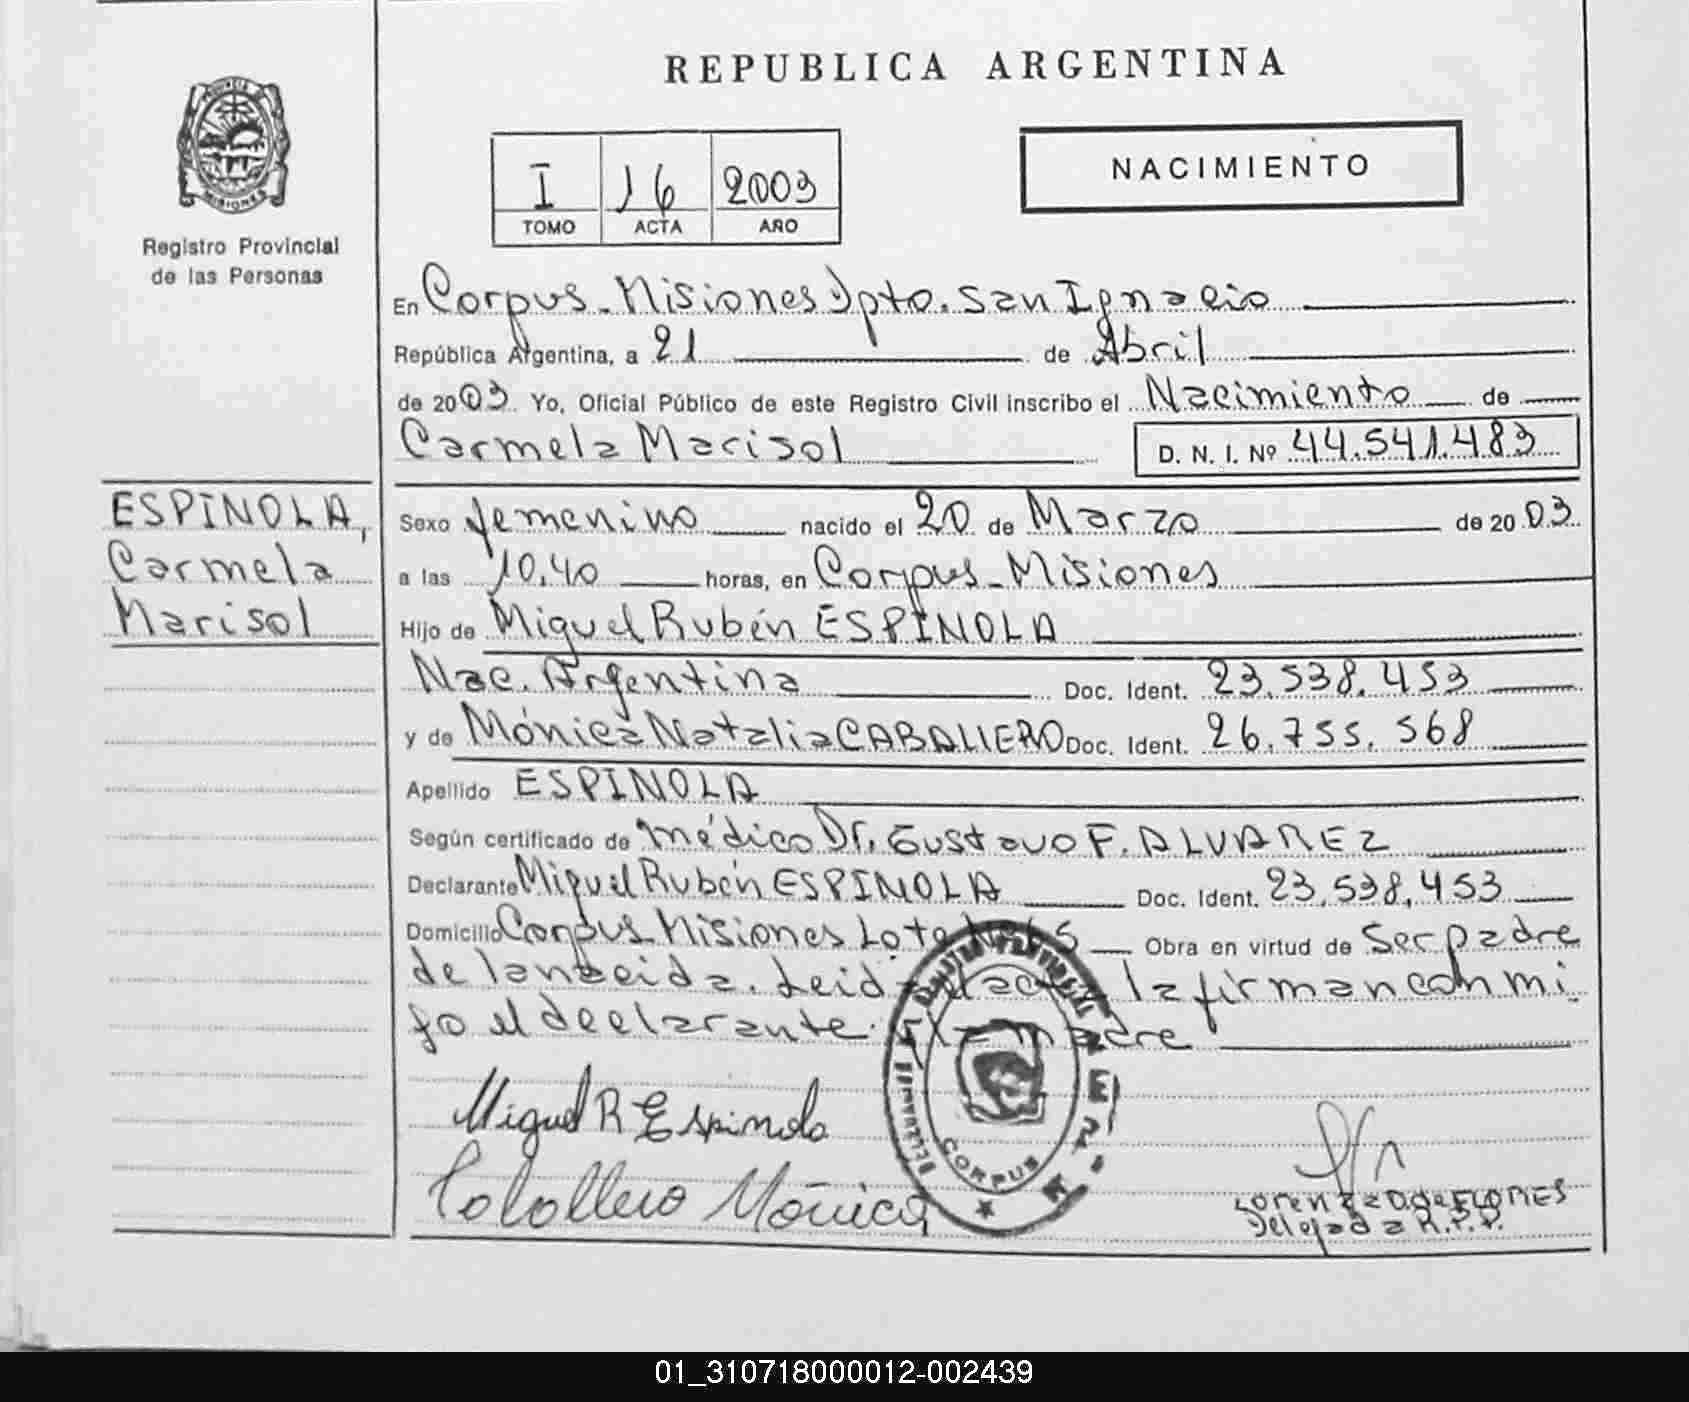 REPUBLICA ARGENTINA
PROVINCIA DE
MISIONES
Registro Provincial
de las Personas
I 16 2003
TOMO ACTA AÑO
NACIMIENTO
En Corpus - Misiones Dpto. San Ignacio
República Argentina, a 21 de Abril
de 2003 Yo, Oficial Público de este Registro Civil inscribo el Nacimiento de
Carmela Marisol D. N. I. Nº 44.541.483
ESPINOLA,
Carmela
Marisol
Sexo femenino nacido el 20 de Marzo de 2003
a las 10,40 horas, en Corpus - Misiones
Hijo de Miguel Rubén ESPINOLA
Nac. Argentina Doc. Ident. 23.538.453
y de Mónica Natalia CABALLERO Doc. Ident. 26.755.568
Apellido ESPINOLA
Según certificado de médico Dr. Gustavo F. ALVAREZ
Declarante Miguel Rubén ESPINOLA Doc. Ident. 23.538.453
Domicilio Corpus Misiones Lote Obra en virtud de Ser padre
de la nacida. Leida el acta la firman con mi
go el declarante y la madre
Miguel R Espinola
Caballero Mónica
CORPUS
Lorenza D. de FLORES
Delegada R.P.P.
01_310718000012-002439